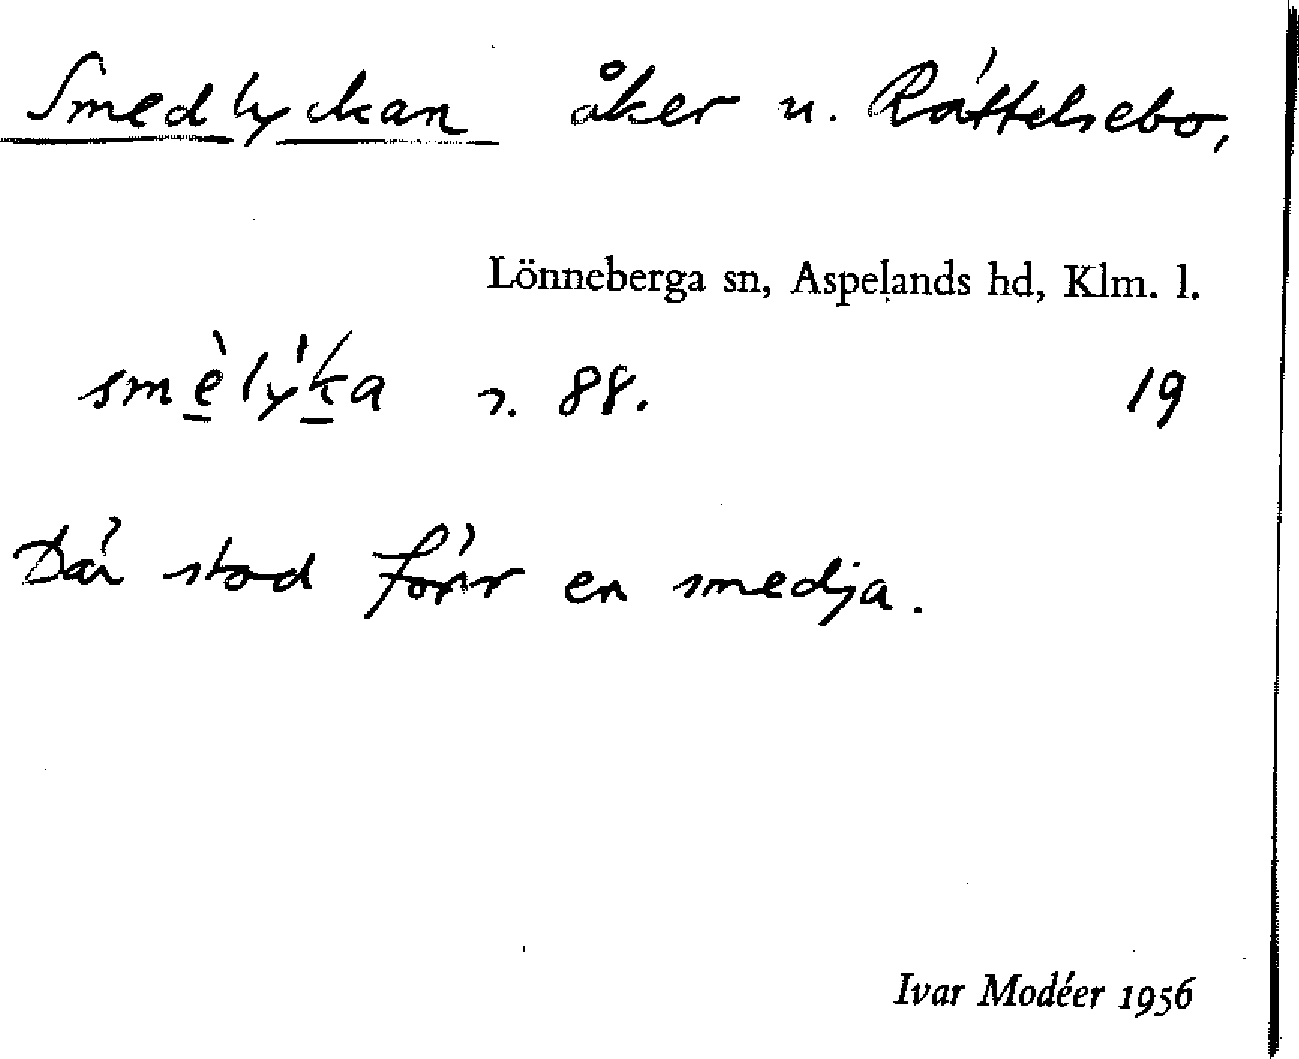 Smedlyckan åker u. Råttelsebo,
Lönneberga sn, Aspelands hd, Klm. l.
smè̱lýḵa s. 88. 19
Där stod förr en smedja.
Ivar Modéer 1956